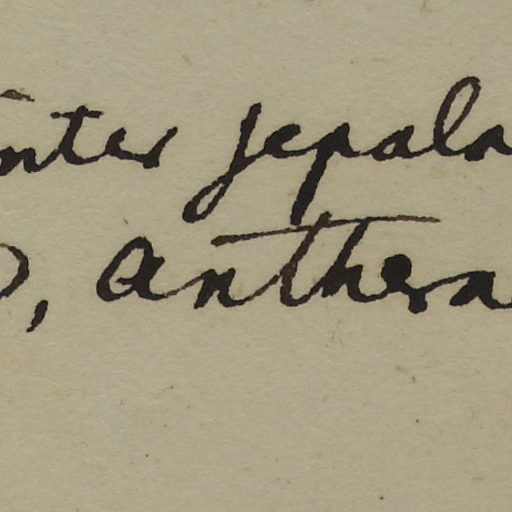 inter sepala
, anthera